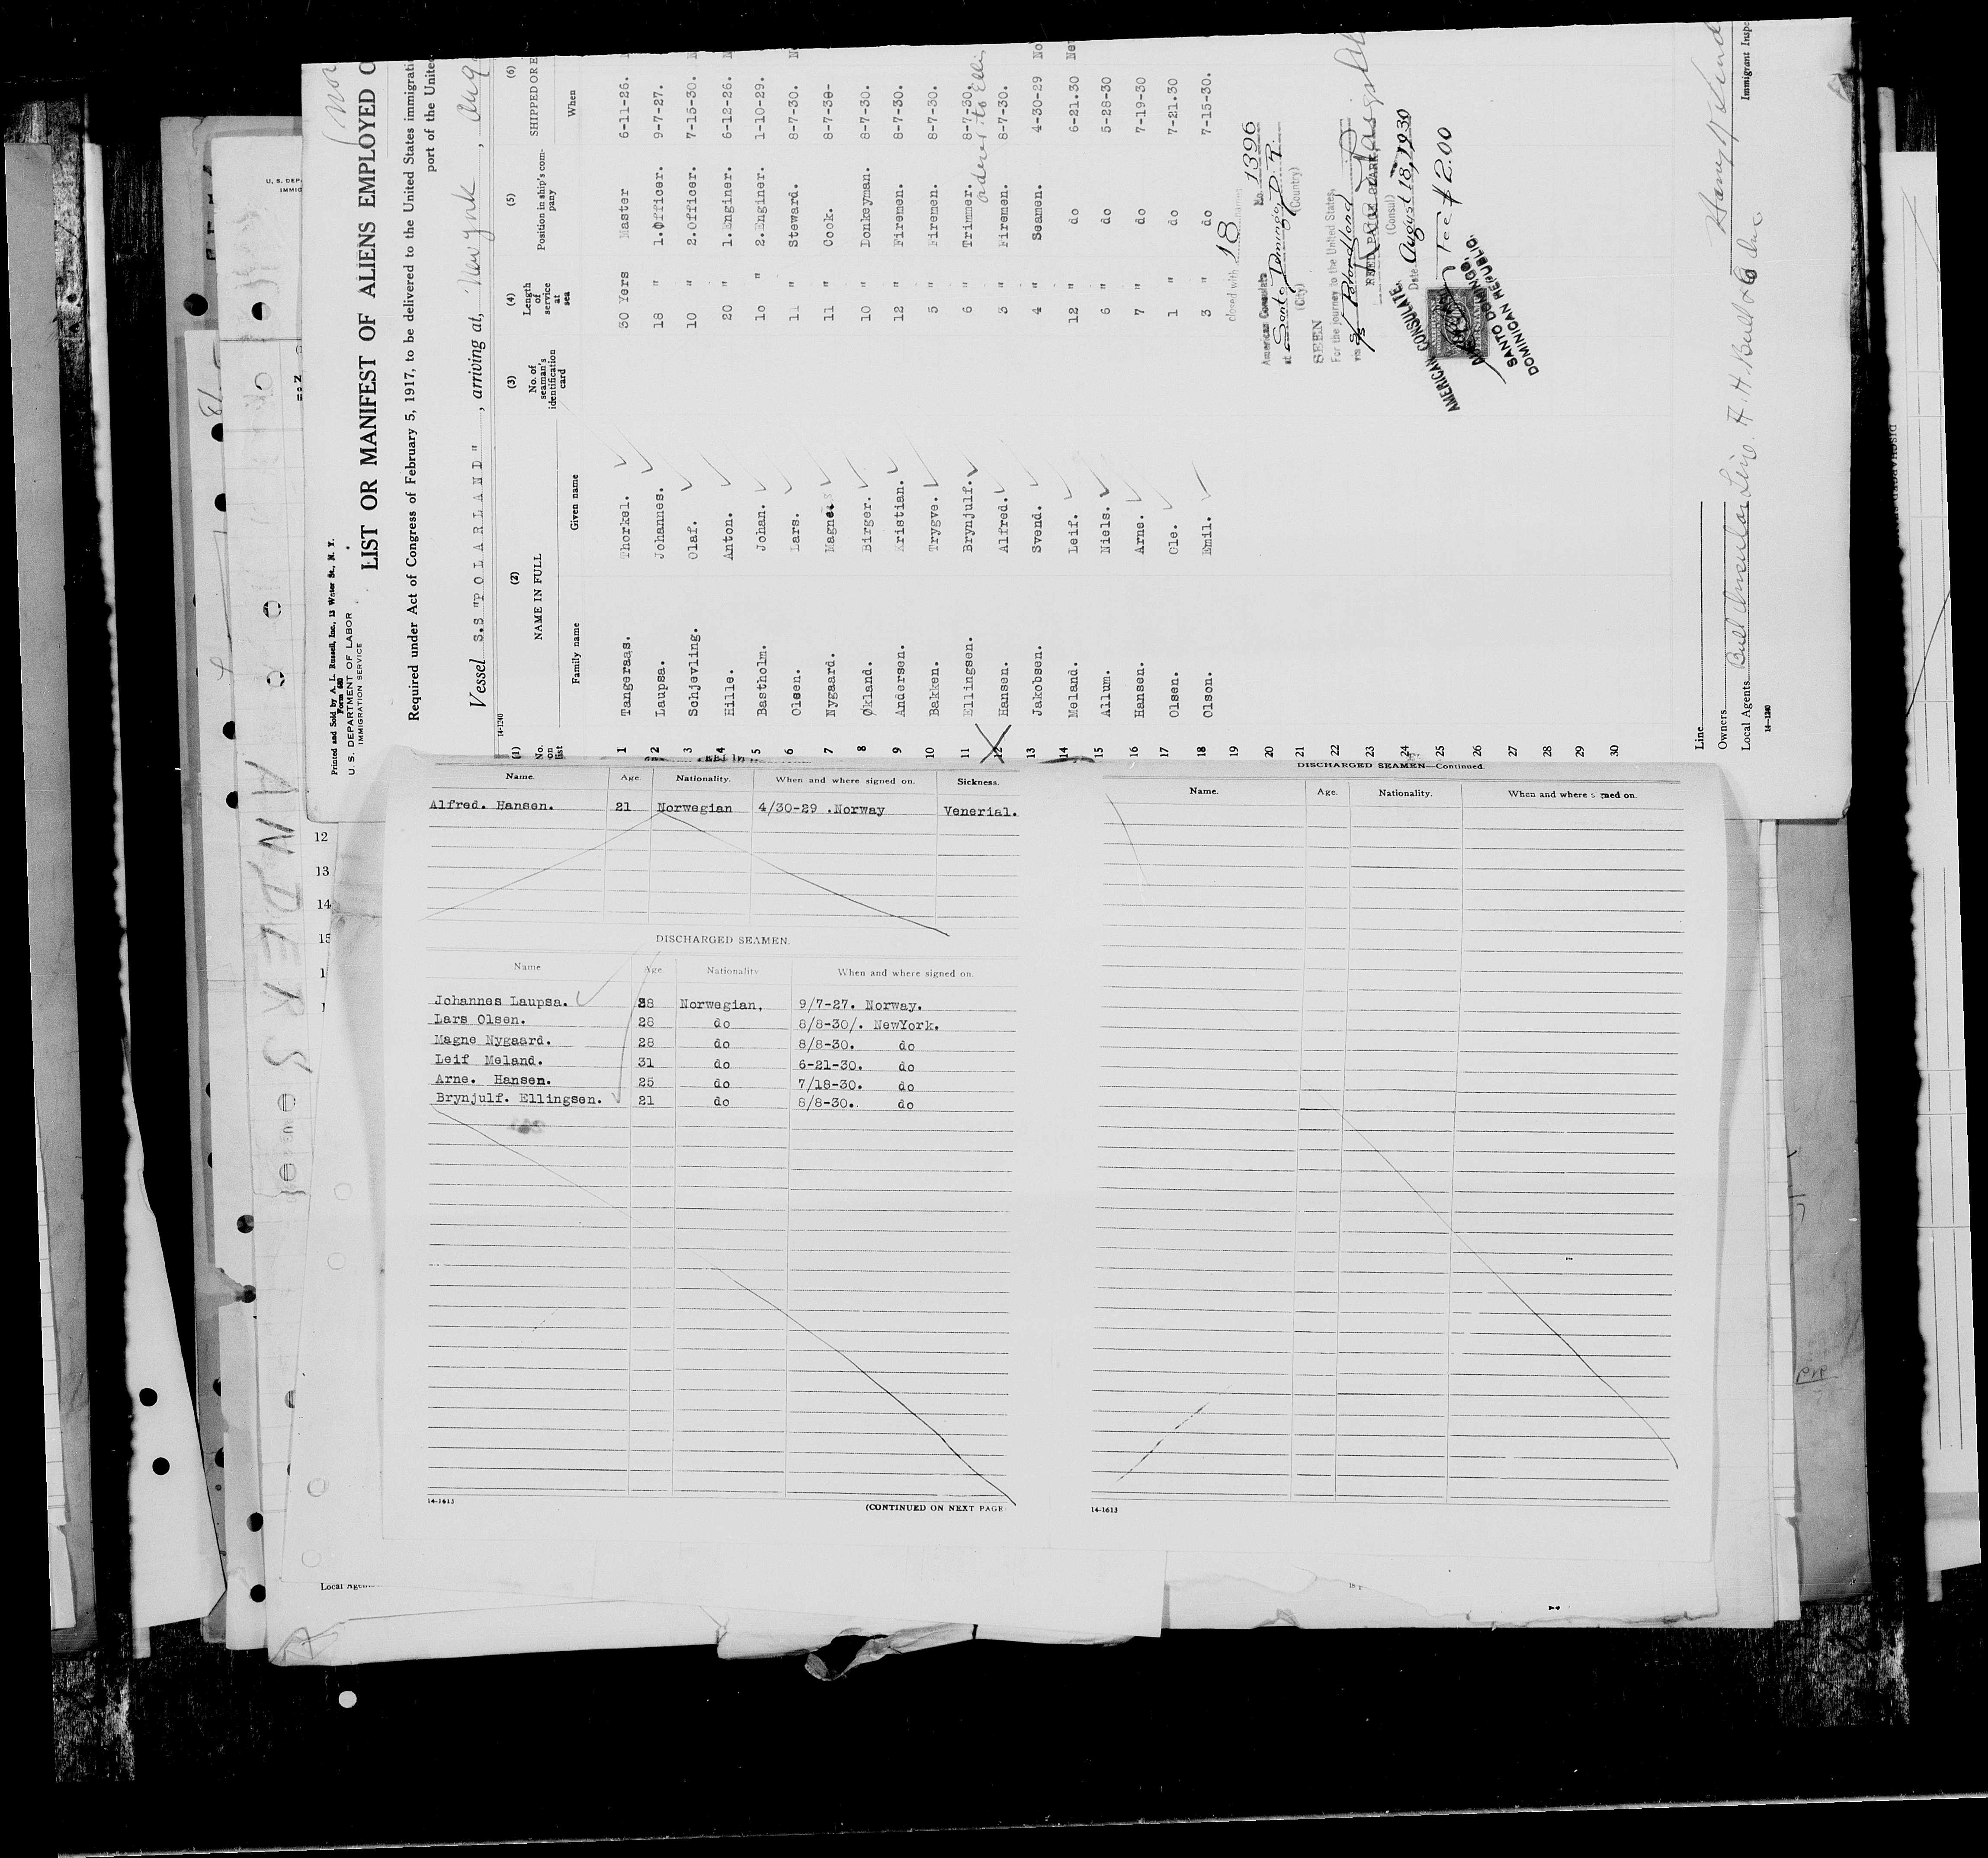 Printed and Sold by A. L. Russell, Inc., 13 Water St., N. Y.
Form 680
U. S. DEPARTMENT OF LABOR
IMMIGRATION SERVICE
LIST OR MANIFEST OF ALIENS EMPLOYED O
Required under Act of Congress of February 5, 1917, to be delivered to the United States immigrati
port of the United
Vessel S.S "POLARLAND", arriving at, New york, aug.
14-1240
(1) (2) (3) (4) (5) (6)
No. on list NAME IN FULL No. of seaman's identification card Length of service at sea Position in ship's company SHIPPED OR E
Family name Given name When
1 Tangeraas. Thorkel. 30 Yers Master 6-11-26.
2 Laupsa. Johannes. 18 " 1.Officer. 9-7-27.
3 Schjevling. Olaf. 10 " 2.Officer. 7-15-30.
4 Hille. Anton. 20 " 1.Enginer. 6-12-26.
5 Bastholm. Johan. 10 " 2.Enginer. 1-10-29.
6 Olsen. Lars. 11 " Steward. 8-7-30.
7 Nygaard. Magne. 11 " Cook. 8-7-30-
8 Økland. Birger. 10 " Donkeyman. 8-7-30.
9 Andersen. Kristian. 12 " Firemen. 8-7-30.
10 Bakken. Trygve. 5 " Firemen. 8-7-30.
11 Ellingsen. Brynjulf. 6 " Trimmer. 8-7-30.
ordered to Ellis
12 Hansen. Alfred. 3 " Firemen. 8-7-30.
13 Jakobsen. Svend. 4 " Seamen. 4-30-29 No
14 Meland. Leif. 12 " do 6-21.30 New
15 Allum. Niels. 6 " do 5-28-30
16 Hansen. Arne. 7 " do 7-19-30
17 Olsen. Ole. 1 " do 7-21.30
18 Olson. Emil. 3 " do 7-15-30.
19
20
21
22
23
24
25
26
27
28
29
30
closed with 18 names
American Consulate No. 1396
at Santo Domingo, D. R.
(City) (Country)
SEEN
For the journey to the United States,
via
(Consul)
Date August 18, 1930
Fee $2.00
AMERICAN CONSULATE,
SANTO DOMINGO,
DOMINICAN REPUBLIC.
Line
Owners
Local Agents Bull Insular Line. A. H. Bull & Co Inc
14-1240
Immigrant Inspe
Name. Age. Nationality. When and where signed on. Sickness.
Alfred. Hansen. 21 Norwegian 4/30-29 .Norway Venerial.
DISCHARGED SEAMEN.
Name Age Nationality When and where signed on.
Johannes Laupsa. 38 Norwegian, 9/7-27. Norway.
Lars Olsen. 28 do 8/8-30/. NewYork.
Magne Nygaard. 28 do 8/8-30. do
Leif Meland. 31 do 6-21-30. do
Arne. Hansen. 25 do 7/18-30. do
Brynjulf. Ellingsen. 21 do 8/8-30.. do
14-1613
(CONTINUED ON NEXT PAGE
DISCHARGED SEAMEN—Continued.
Name. Age. Nationality. When and where signed on.
14-1613
12
13
14
15
Local Agents